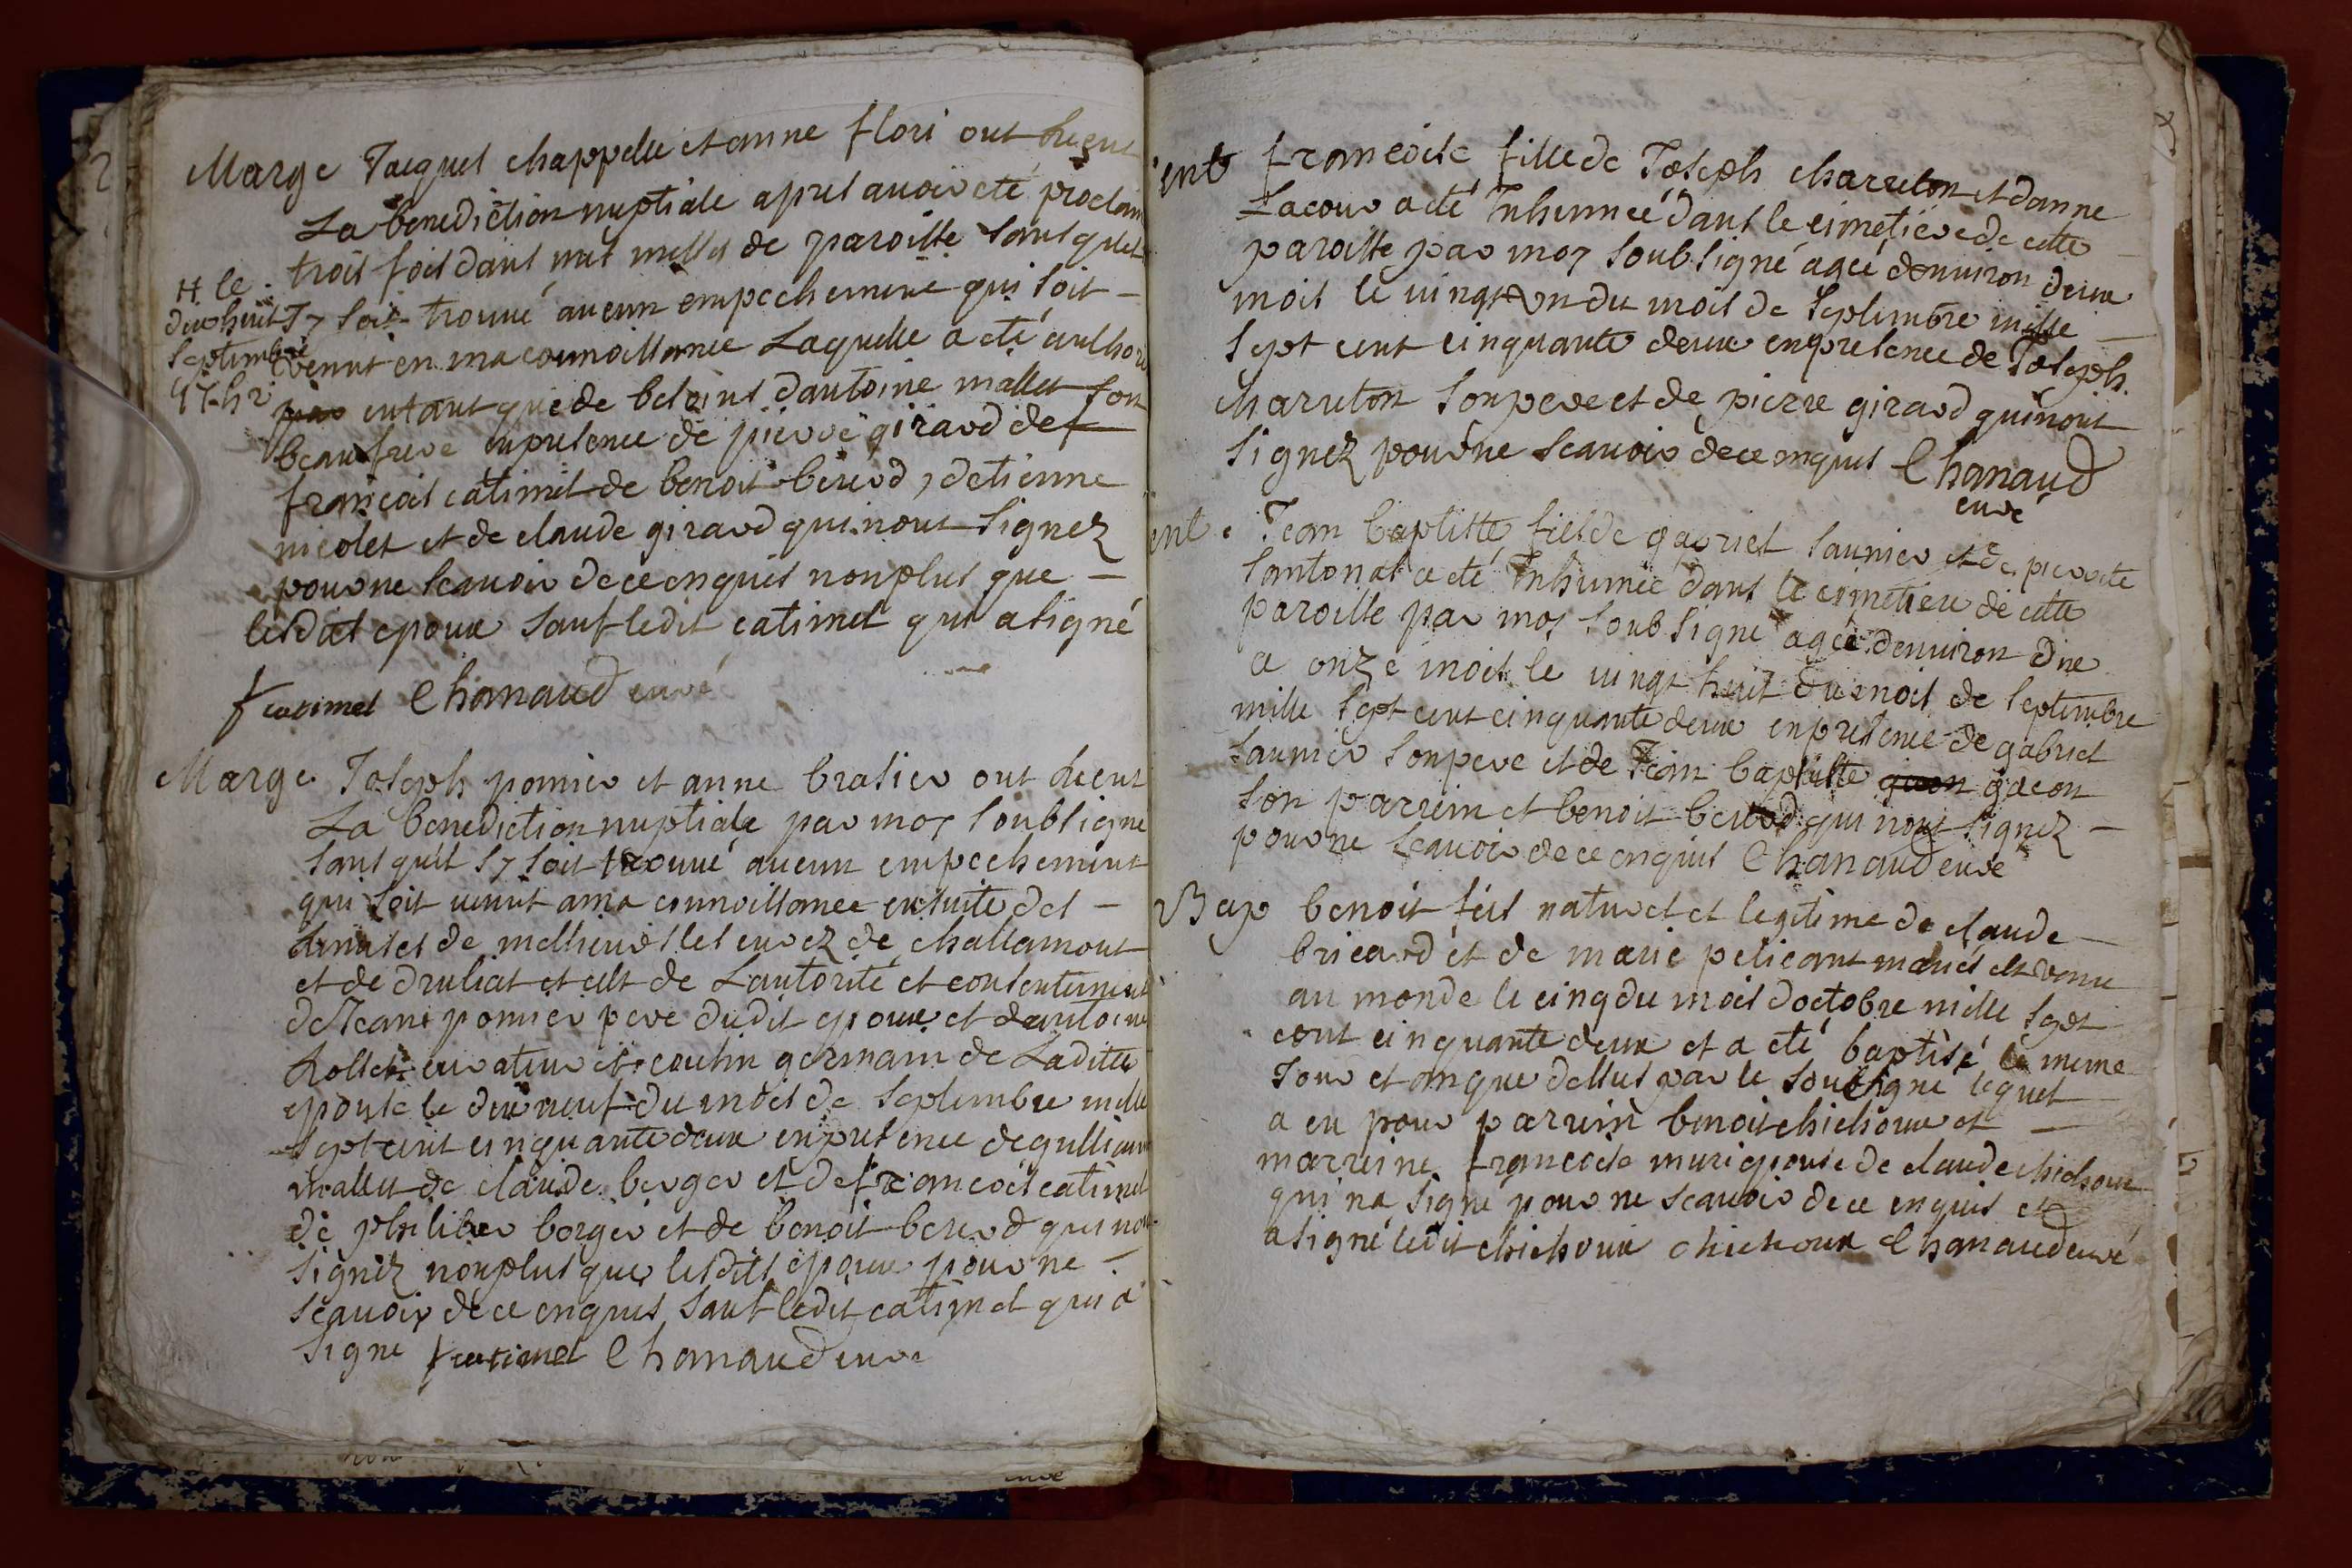 Marge Jacques chappelle et anne flori ont Receut
La benediction nuptiale apres avoir eté proclam
trois fois dans nos messes de paroisse sans quil
H le dix huit septembre
sy soit trouvé aucun empechement qui soit —
venut en ma connoissance Laquelle a eté authori
par entant que de besoins dantoine mallet son
beaufrere en presence de pierre girard de f
françois catimel de benoit berod, detienne
nicolet et de claude girard qui nont signez
pour ne scavoir de ce enquis non plus que —
lesdits epoux sauf ledit catimel qui a signé
f catimel Chanaud curé
Marge Joseph pomier et anne brasier ont Receut
La benediction nuptiale par moy soubsigné
sans quil sy soit trouvé aucun empechement
qui soit venut a ma connoissance ensuite des —
Remises de messieurs les curez de chatlamont
et de druliat et cest de Lautorité et consentement
de Jean pomier pere dudit epoux et dantoine
Rollet curateur et cousin germain de Laditte
epouse le dix neuf du mois de septembre mille
sept cent cinquante deux en presence de gulliaume
mallet de claude berger et de françois catimel
de philiber berger et de benoit berod qui nont
signez non plus que lesdits epoux pour ne —
scavoir de ce enquis sauf ledit catimel qui a
signe f catimel Chanaud curé
ent françoise fille de Joseph charreton et danne
Lacour a eté Inhumeé dans le cimetiere de cette
paroisse par moy soubsigné ageé denviron deux
mois le vingt un du mois de septembre mille
sept cent cinquante deux en presence de Joseph
charreton son pere et de pierre girard qui nont
signez pour ne scavoir de ce enquis Chanaud
curé
ent. Jean baptiste fils de gabriel saunier et de pierrette
santonat a eté Inhumée dans le cimetiere de cette
paroisse par moy soubsigné ageé denviron dne
a onze mois le vingt huit du mois de septembre
mille sept cent cinquante deux en presence de gabriel
saunier son pere et de Jean baptiste gacon
son parrein et benoit berod qui nont signez —
pour ne scavoir de ce enquis Chanaud curé
Bap benoit fils naturel et legitime de claude —
bricard et de marie pelicant mariés est venu
au monde le cinq du mois doctobre mille sept
cent cinquante deux et a eté baptisé le meme
Jour et an que dessus par le soubsigné lequel
a eu pour parrein benoit chichoux et —
marreine francoise muri epouse de claude chichoux
qui na signe pour ne scavoir de ce enquis et
a signé ledit chichoux chichoux Chanaud curé